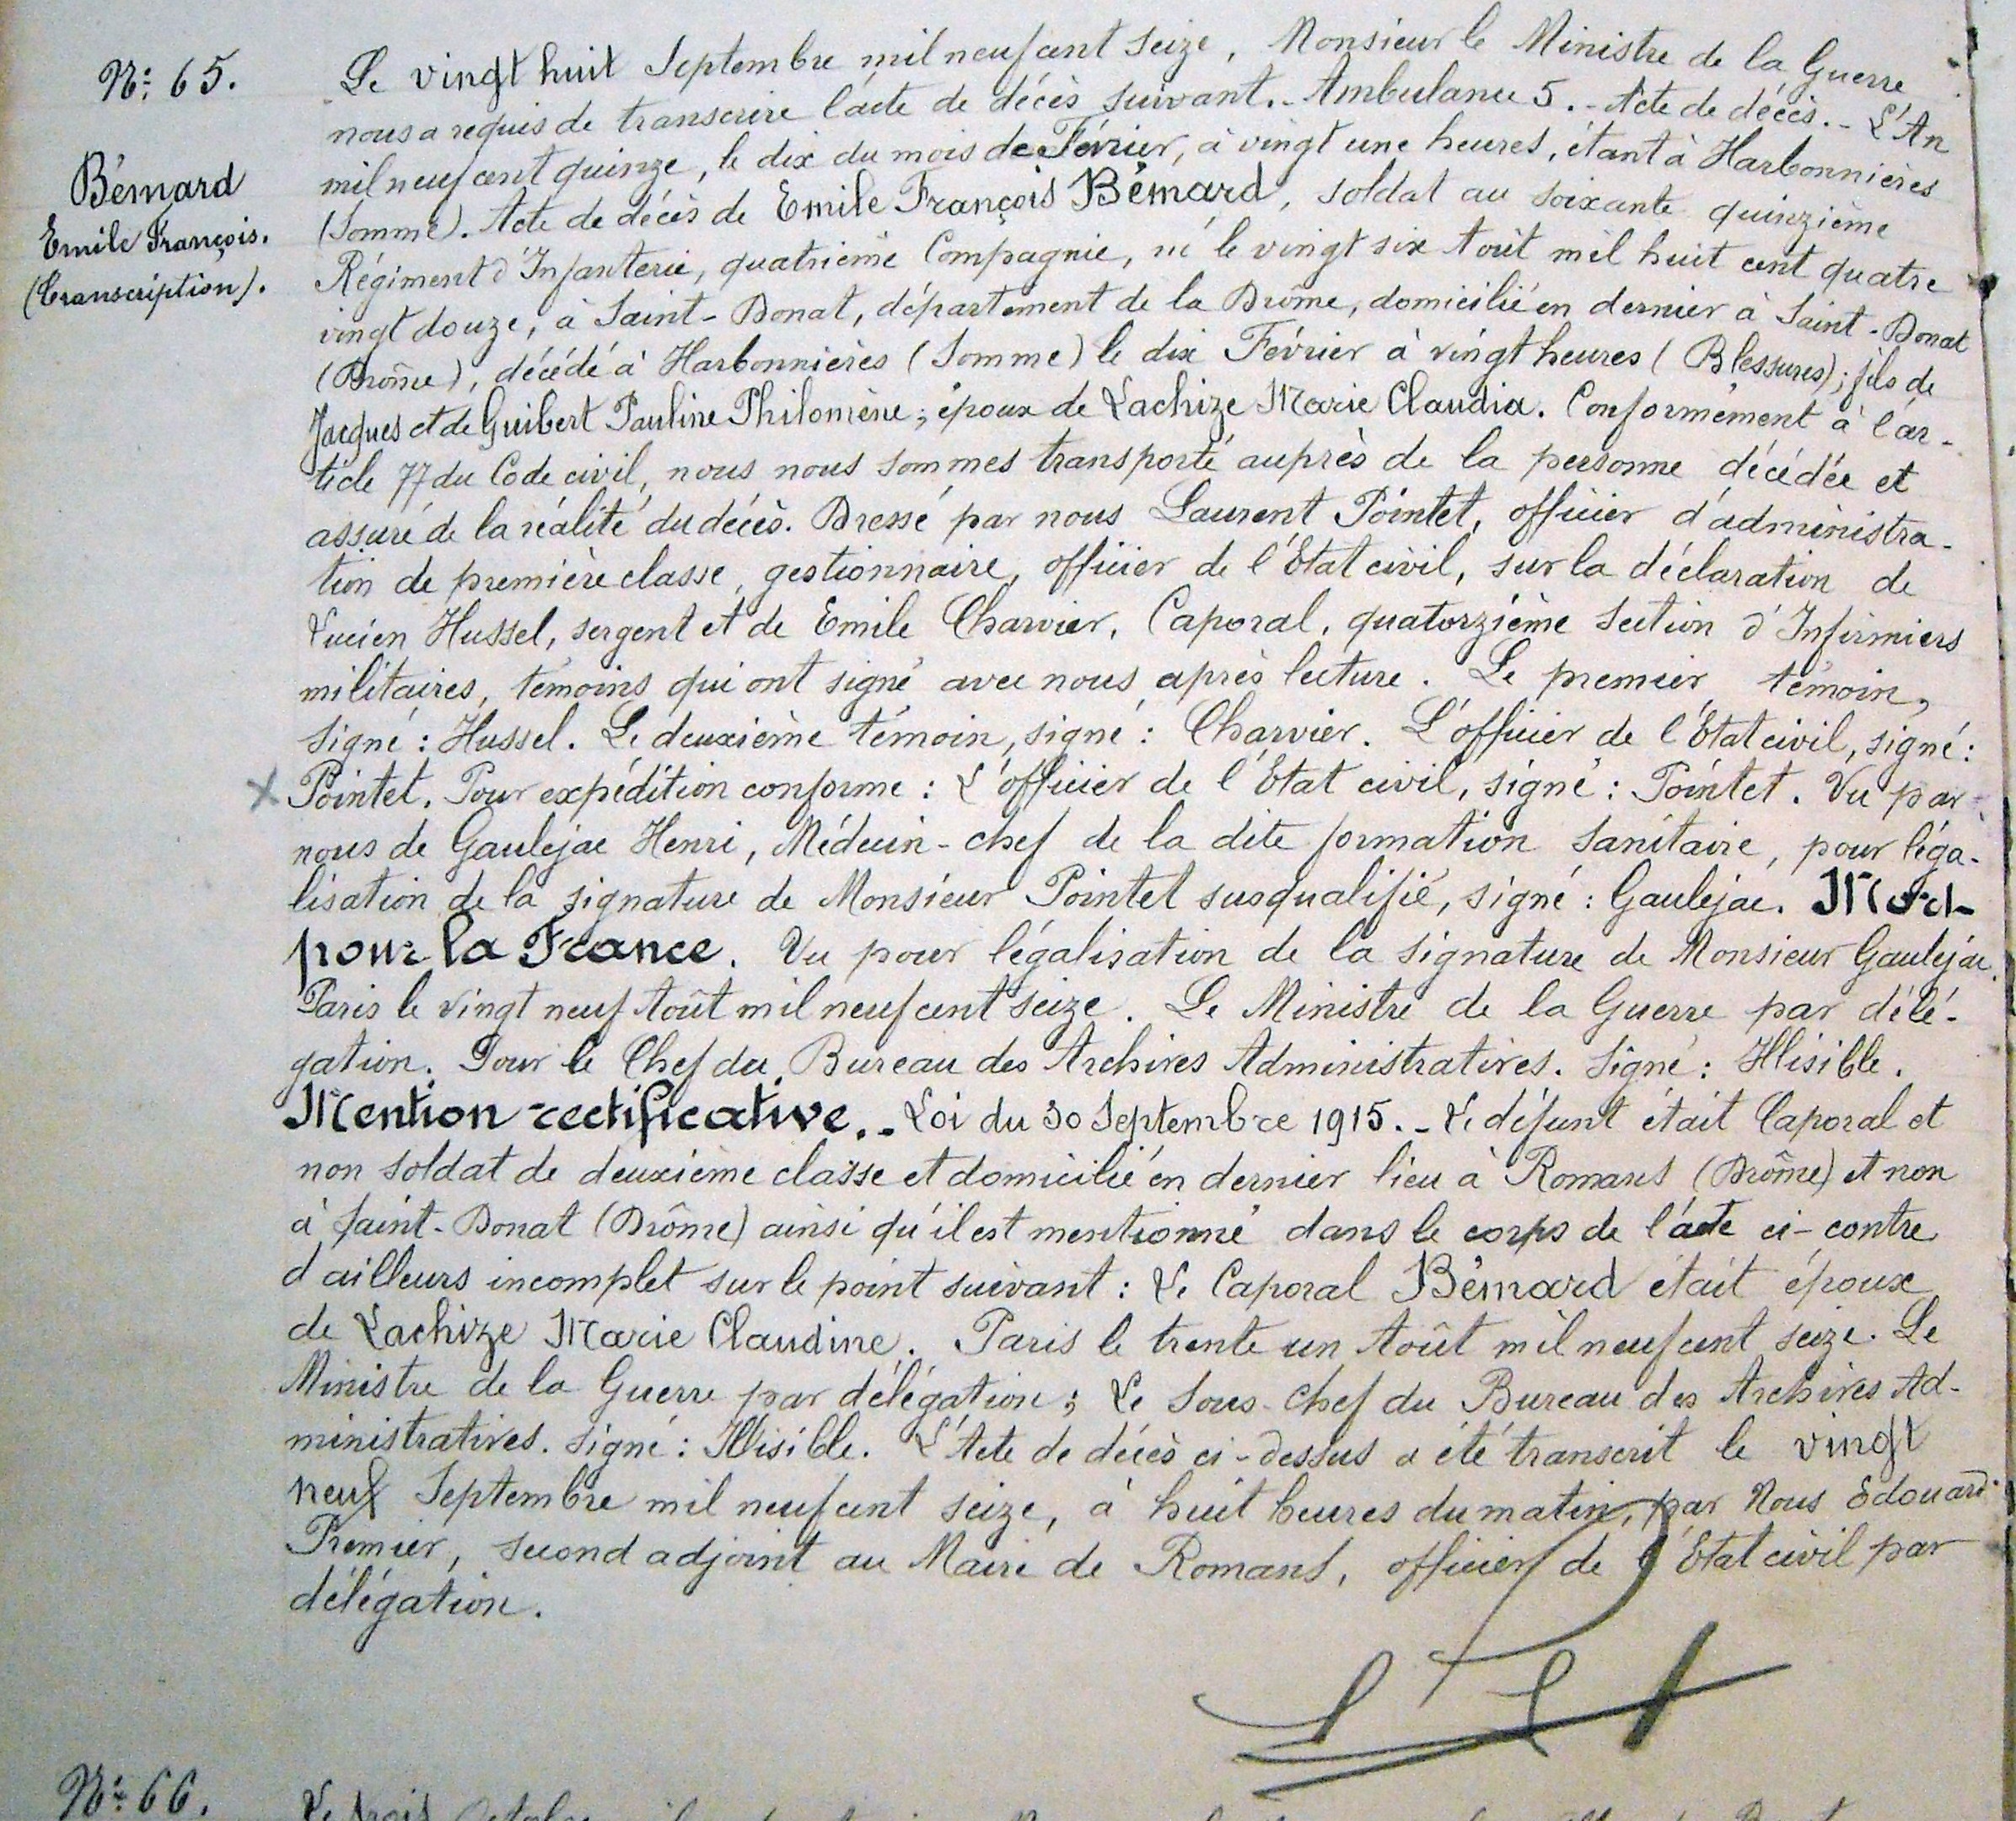 N°: 65.
Bémard
Emile François.
(Transcription).
Le vingt huit Septembre mil neuf cent seize, Monsieur le Ministre de la Guerre
nous a requis de transcrire l'acte de décès suivant. - Ambulance 5. - Acte de décès. - L'An
mil neuf cent quinze, le dix du mois de Février, à vingt une heures, étant à Harbonnières
(Somme). Acte de décès de Emile François Bémard, soldat au soixante quinzième
Régiment d'Infanterie, quatrième Compagnie, né le vingt six Août mil huit cent quatre
vingt douze, à Saint-Donat, département de la Drôme, domicilié en dernier à Saint-Donat
(Drôme), décédé à Harbonnières (Somme) le dix Février à vingt heures (Blessures); fils de
Jacques et de Guibert Pauline Philomène; époux de Lachize Marie Claudia. Conformément à l'ar-
ticle 77 du Code civil, nous nous sommes transporté auprès de la personne décédée et
assuré de la réalité du décès. Dressé par nous Laurent Pointet, officier d'administra-
tion de première classe, gestionnaire, officier de l'Etat civil, sur la déclaration de
Lucien Hussel, sergent et de Emile Charvier, Caporal, quatorzième Section d'Infirmiers
militaires, témoins qui ont signé avec nous après lecture. Le premier témoin,
signé: Hussel. Le deuxième témoin, signé: Charvier. L'officier de l'Etat civil, signé:
x Pointet. Pour expédition conforme: L'officier de l'Etat civil, signé: Pointet. Vu par
nous de Gaulejac Henri, Médecin-chef de la dite formation sanitaire, pour léga-
lisation de la signature de Monsieur Pointet susqualifié, signé: Gaulejac. Mort
pour la France. Vu pour légalisation de la signature de Monsieur Gaulejac.
Paris le vingt neuf Août mil neuf cent seize. Le Ministre de la Guerre par délé-
gation. Pour le Chef du Bureau des Archives Administratives. Signé: Illisible.
Mention rectificative. - Loi du 30 Septembre 1915. - Le défunt était Caporal et
non soldat de deuxième classe et domicilié en dernier lieu à Romans (Drôme) et non
à Saint-Donat (Drôme) ainsi qu'il est mentionné dans le corps de l'acte ci-contre
d'ailleurs incomplet sur le point suivant: Le Caporal Bémard était époux
de Lachize Marie Claudine. Paris le trente un Août mil neuf cent seize. Le
Ministre de la Guerre par délégation; Le Sous-Chef du Bureau des Archives Ad-
ministratives. Signé: Illisible. L'Acte de décès ci-dessus a été transcrit le vingt
neuf Septembre mil neuf cent seize, à huit heures du matin, par Nous Edouard
Premier, second adjoint au Maire de Romans, officier de l'Etat civil par
délégation.
N°: 66.